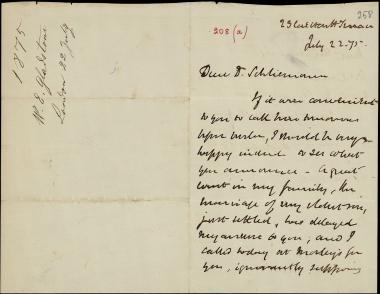 1875
W. E. Gladstone
London 22 July
208 (a)
258
23 Carlton H. Terrace
July 22. 75.
Dear Dr. Schliemann
If it were convenient
to you to call here tomorrow
upon, I should be very
happy indeed to see what
you announce. A great
event in my family, the
marriage of my eldest son,
just settled, has delayed
my answer to you, and I
called today at Morley's for
you, ignorantly supposing